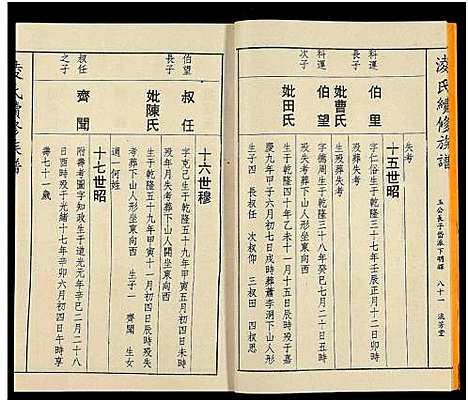 淩氏續修族譜
玉公長子岱派下明輝
八十一
流芳堂
失考
十五世昭
科運
長子
伯里
字仁俗生于乾隆三十七年壬辰正月十二日
歿葬失考
妣曹氏
生歿葬失考
科運
次子
伯望
字德周生于乾隆三十八年癸巳七月二十日
時歿失考葬下山人形
妣田氏
生于乾隆四十年乙未十一月十五日辰時歿于嘉
慶九年甲子六月初七日戌時葬蕭李洞下山人形
生子四 長叔任 次叔仰 三叔田 四叔恩
十六世穆
伯望
長子
叔任
字克己生于乾隆五十九年甲寅五月初四日未時
歿年月失考葬下山人開坐東向西
妣陳氏
生于乾隆五十九年甲寅十一月初四日辰時歿失
考葬下山人形坐東向西 生子一 齊聞 生女
適一何姓
十七世昭
叔任
之子
齊聞
附壽考圖字知政生于道光元年辛巳二月二十八
日酉時歿于光緒十七年辛卯六月初四日午時享
壽七十一歲
淩氏續修族譜